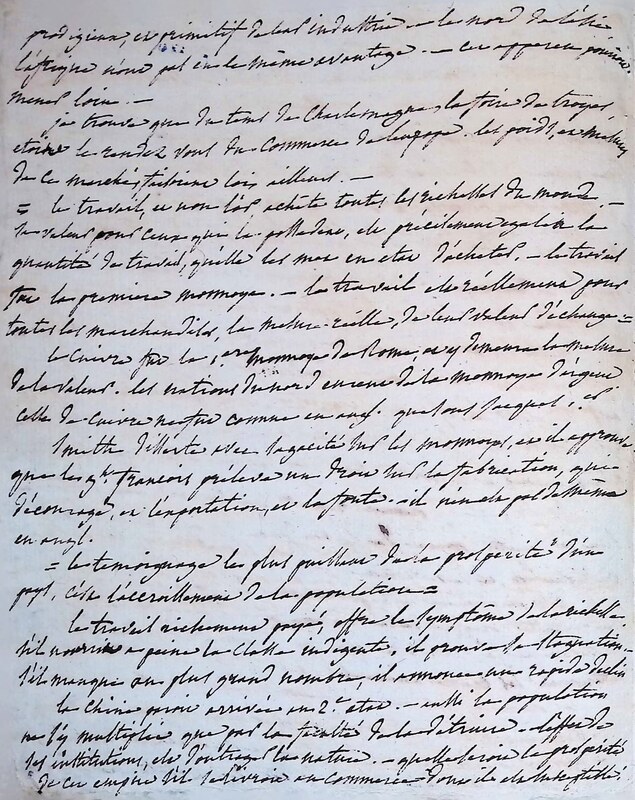 prodigieux, et primitif de leur industrie. — le nord de l'asie
l'afrique n'ont pas eu le même avantage. — cet apperçu pouvait
mener loin. —
je trouve que du tems de Charlemagne, la foire de troyes
etoit le rendez vous du Commerce de l'europe. les poids, et mesures
de ce marché, faisoient lois ailleurs. —
= le travail, et non l'or, achete toutes les richesses du monde. —
sa valeur pour ceux que la possedent, est précisement egale à la
quantité de travail, qu'elle les met en etat d'acheter. — le travail
fut la premiere monnoye. — le travail est réellement pour
toutes les marchandises, la mesure réelle, de leur valeur d'échange =
le Cuivre fut la 1ere monnoye de Rome, et y demeura la mesure
de la valeur. les nations du nord eurent de la monnoye d'argent
celle de Cuivre ne fut connue en angl. que sous Jacques 1er
Smith disserte avec sagacité sur les monnoyes, et il approuve
que les françois préleve un droit sur la fabrication, qui
décourage, et l'exportation, et la fonte. il n'en est pas de même
en angl.
= le temoignage le plus puissant de la prosperité d'un
pays, c'est l'accroissement de la population =
le travail richement payé, offre le Symptôme de la richesse.
s'il nourrit a peine la Classe indigente, il prouve la Stagnation. —
s'il manque au plus grand nombre, il annonce un rapide déclin
la Chine paroit arrivée au 2e etat. — la population
ne s'y multiplie que par la faculté de la détruire. l'effet de
ses institutions, est d'outrager la nature. — quelle seroit la prosperité
de cet empire s'il se livroit au Commerce dont il est susceptible.